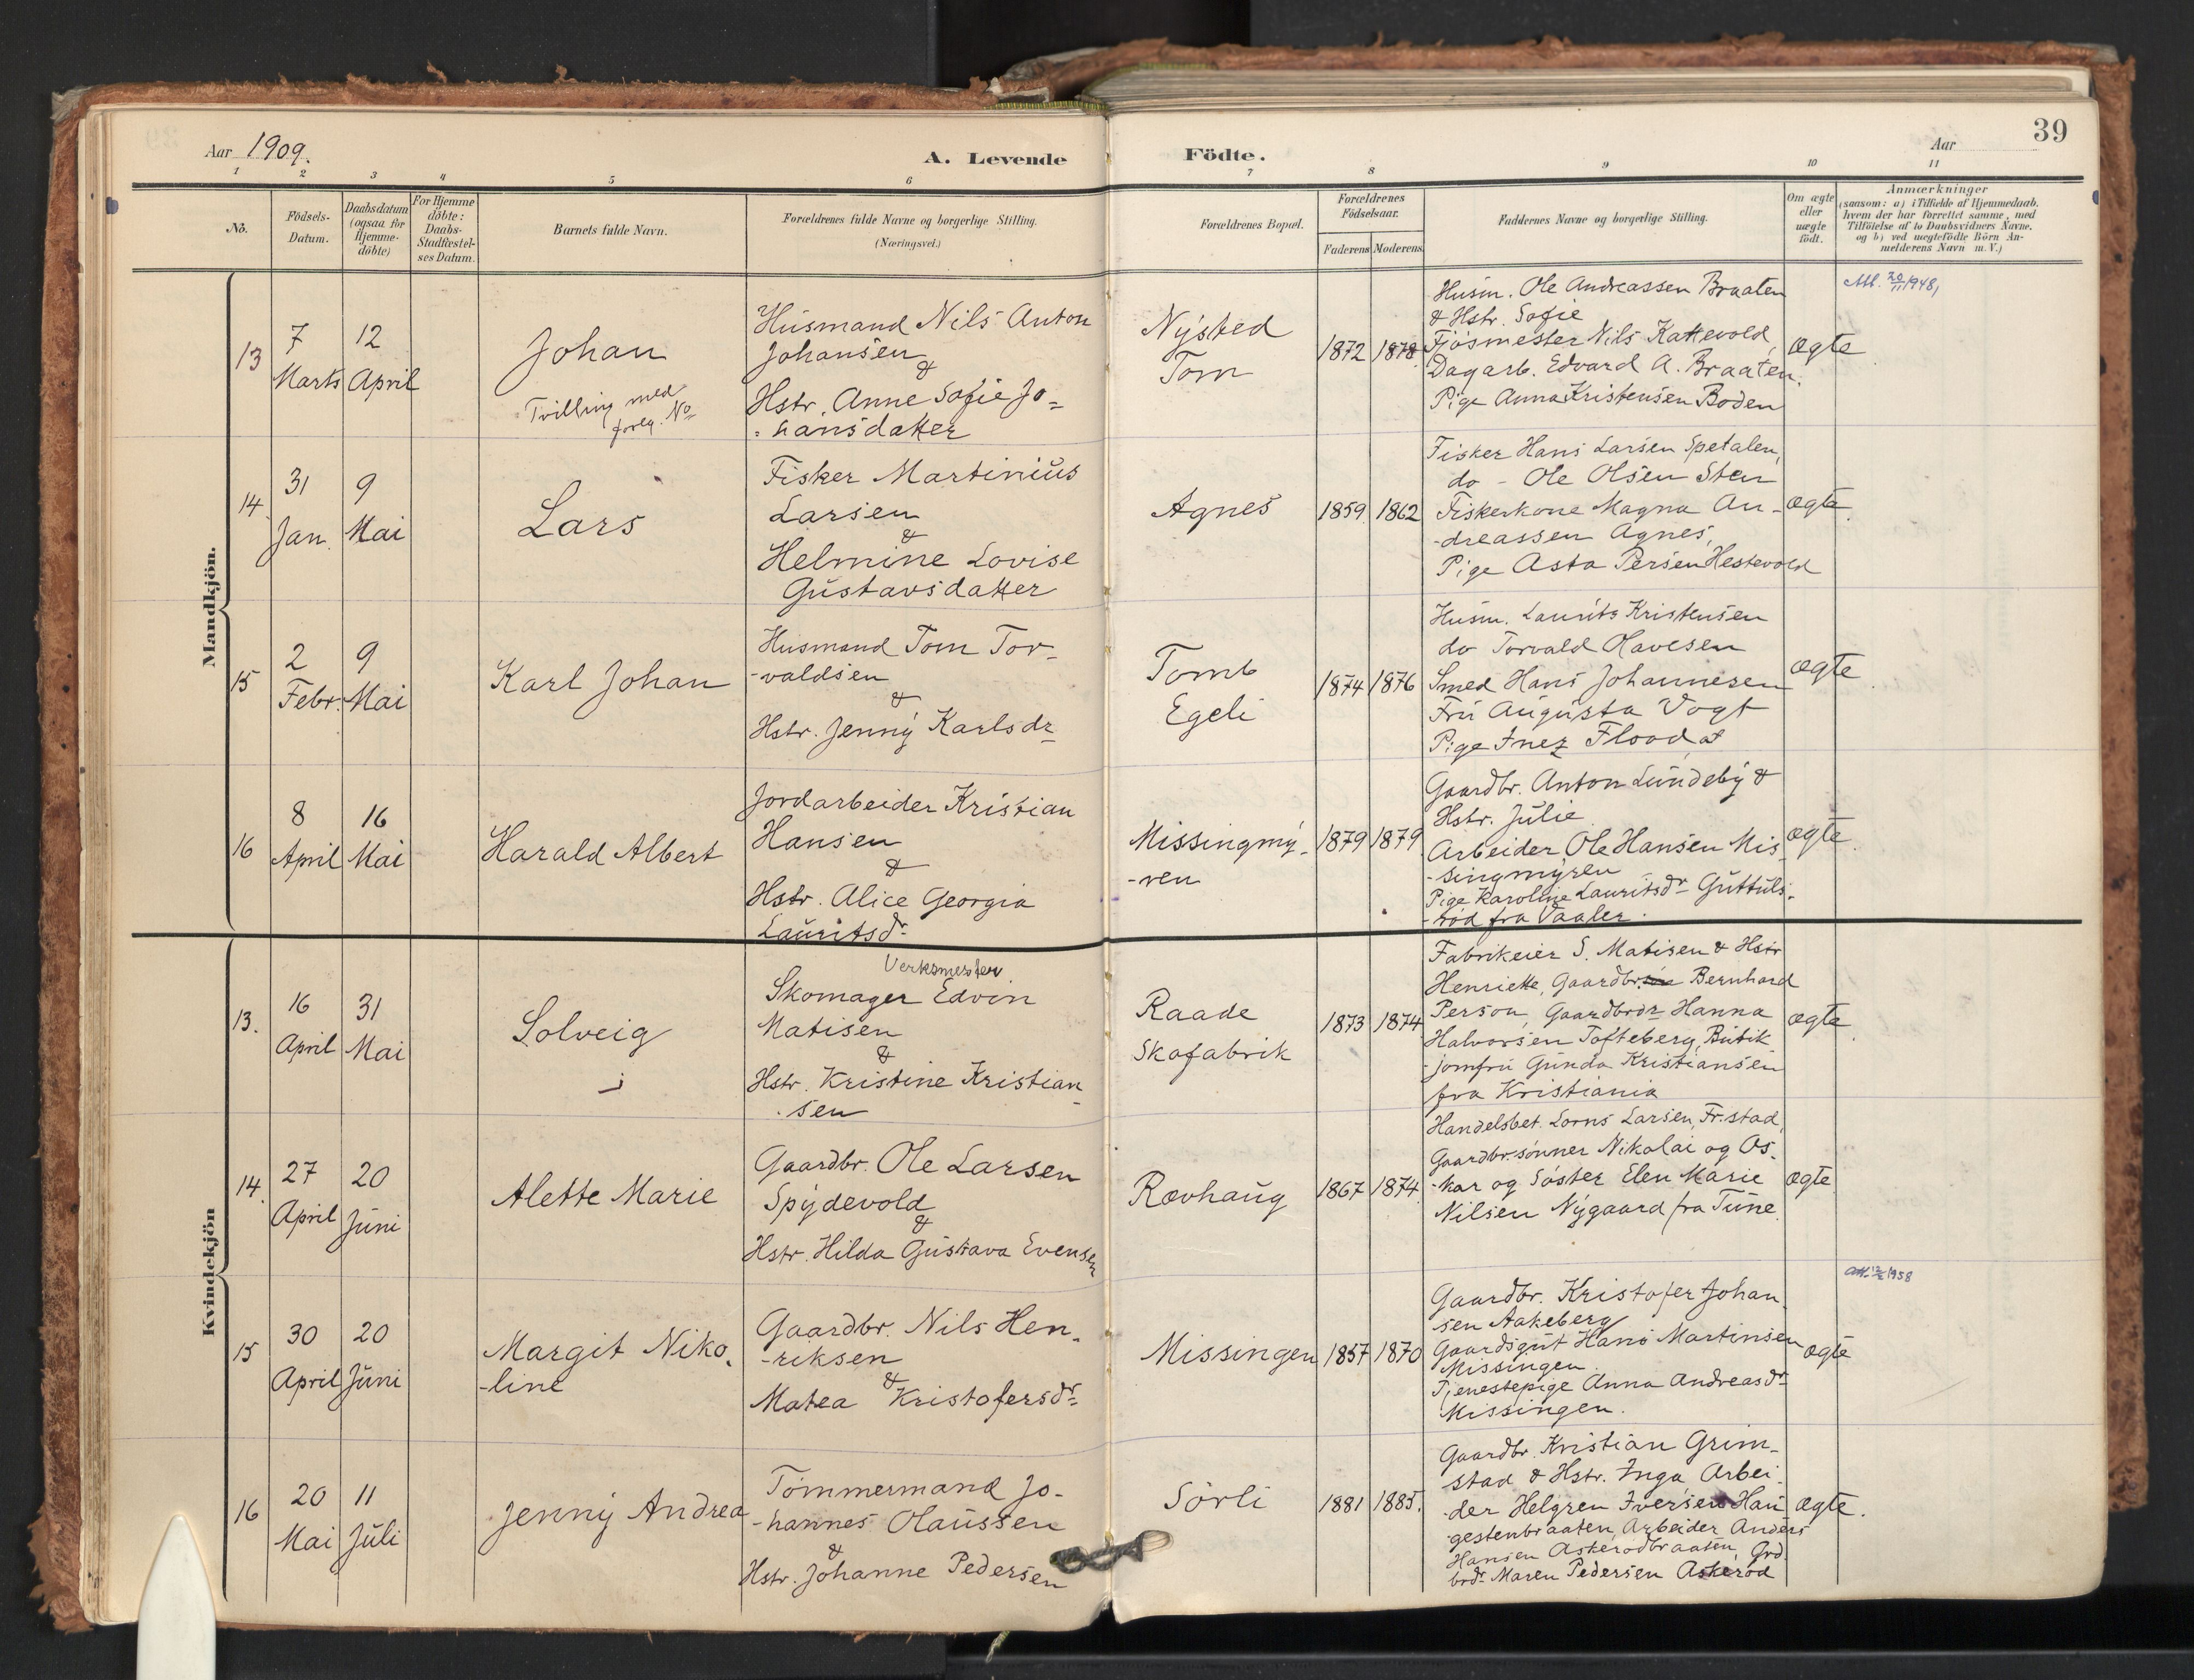 39
Aar 1909.
A. Levende Födte.
Aar
1 2 3 4 5 6 7 8 9 10 11
No.
Födsels-
Datum.
Daabsdatum
(ogsaa for
Hjemme-
döbte)
For Hjemme
döbte:
Daabs-
Stadfæstel-
ses Datum.
Barnets fulde Navn.
Forældrenes fulde Navne og borgerlige Stilling.
(Næringsvei.)
Forældrenes Bopæl.
Forældrenes
Födselsaar.
Faderens Moderens
Faddernes Navne og borgerlige Stilling.
Om ægte
eller
uægte
födt.
Anmærkninger
(saasom: a) i Tilfælde af Hjemmedaab.
hvem der har forrettet samme, med
Tilföielse af to Daabsvidners Navne.
og b) ved uægtefödte Börn An-
melderens Navn m.V.)
Mandkjön.
13
7
Marts
12
April
Johan
Tvilling med
forеg. No
Husmand Nils Anton
Johansen
&
Hstr. Anne Sofie Jo=
=hansdatter
Nysted
Tom
1872 1878
Husm. Ole Andreassen Braaten
& Hstr. Sofie
Fjøsmester Nils Kattevold,
Dagarb. Edvard A. Braaten.
Pige Anna Kristensen Boden
ægte
Att. 20/11 1948,
14.
31
Jan.
9
Mai
Lars
Fisker Martinius
Larsen
&
Helmine Lovise
Gustavsdatter
Agnes
1859. 1862
Fisker Hans Larsen Spetalen,
do - Ole Olsen Sten
Fiskerkone Magna An-
-dreassen Agnes,
Pige Asta Persen Hestevold
ægte.
15
2
Febr.
9
Mai
Karl Johan
Husmand Tom Tor-
-valdsen
&
Hstr. Jenny Karlsdr
Tomb
Egeli
1874 1876
Husm. Laurits Kristensen
do Torvald Olavesen
Smed Hans Johannesen
Fru Augusta Vogt
Pige Inez Flood
ægte
16
8
April
16
Mai
Harald Albert
Jordarbeider Kristian
Hansen
&
Hstr. Alice Georgia
Lauritsdr
Missingmy-
-ren
1879 1879
Gaardbr. Anton Lundeby &
Hstr. Julie
Arbeider Ole Hansen Mis-
-singmyren
Pige Karoline Lauritsdr Guttuls-
-rød fra Vaaler.
ægte.
Kvindekjön
13.
16
April
31
Mai
Solveig
Verksmester
Skomager Edvin
Matisen
&
Hstr. Kristine Kristian-
-sen
Raade
Skofabrik
1873 1874
Fabrikeier S. Matisen & Hstr
Henriette, Gaardbr. Bernhard
Person, Gaardbrdr Hanna
Halvorsen Tofteberg, Butik-
-jomfru Gunda Kristiansen
fra Kristiania
ægte.
14.
27
April
20
Juni
Alette Marie
Gaardbr. Ole Larsen
Spydevold
&
Hstr. Hilda Gustava Evensen
Rævhaug
1867 1874
Handelsbet. Lorns Larsen, Fr.stad,
Gaardbr.sønner Nikolai og Os-
-kar og Søster Elen Marie
Nilsen Nygaard fra Tune.
ægte.
15
30
April
20
Juni
Margit Niko-
-line
Gaardbr. Nils Hen-
-riksen
&
Matea Kristofersdr
Missingen
1857 1870
Gaardbr. Kristofer Johan-
sen Aakeberg
Gaardsgut Hans Martinsen
Missingen.
Tjenestepige Anna Andreasdr
Missingen.
ægte
1958
16
20
Mai
11
Juli
Jenny Andrea
Tømmermand Jo-
-hannes Olaussen
&
Hstr. Johanne Pedersen
Sörli
1881 1885.
Gaardbr. Kristian Grim-
stad & Hstr. Inga Arbei-
-der Helgren Iversen Hau
gestenbraaten, Arbeider Anders
Hansen Askerødbraaten, Grd.
brdr Maren Pedersen Askerød
ægte.